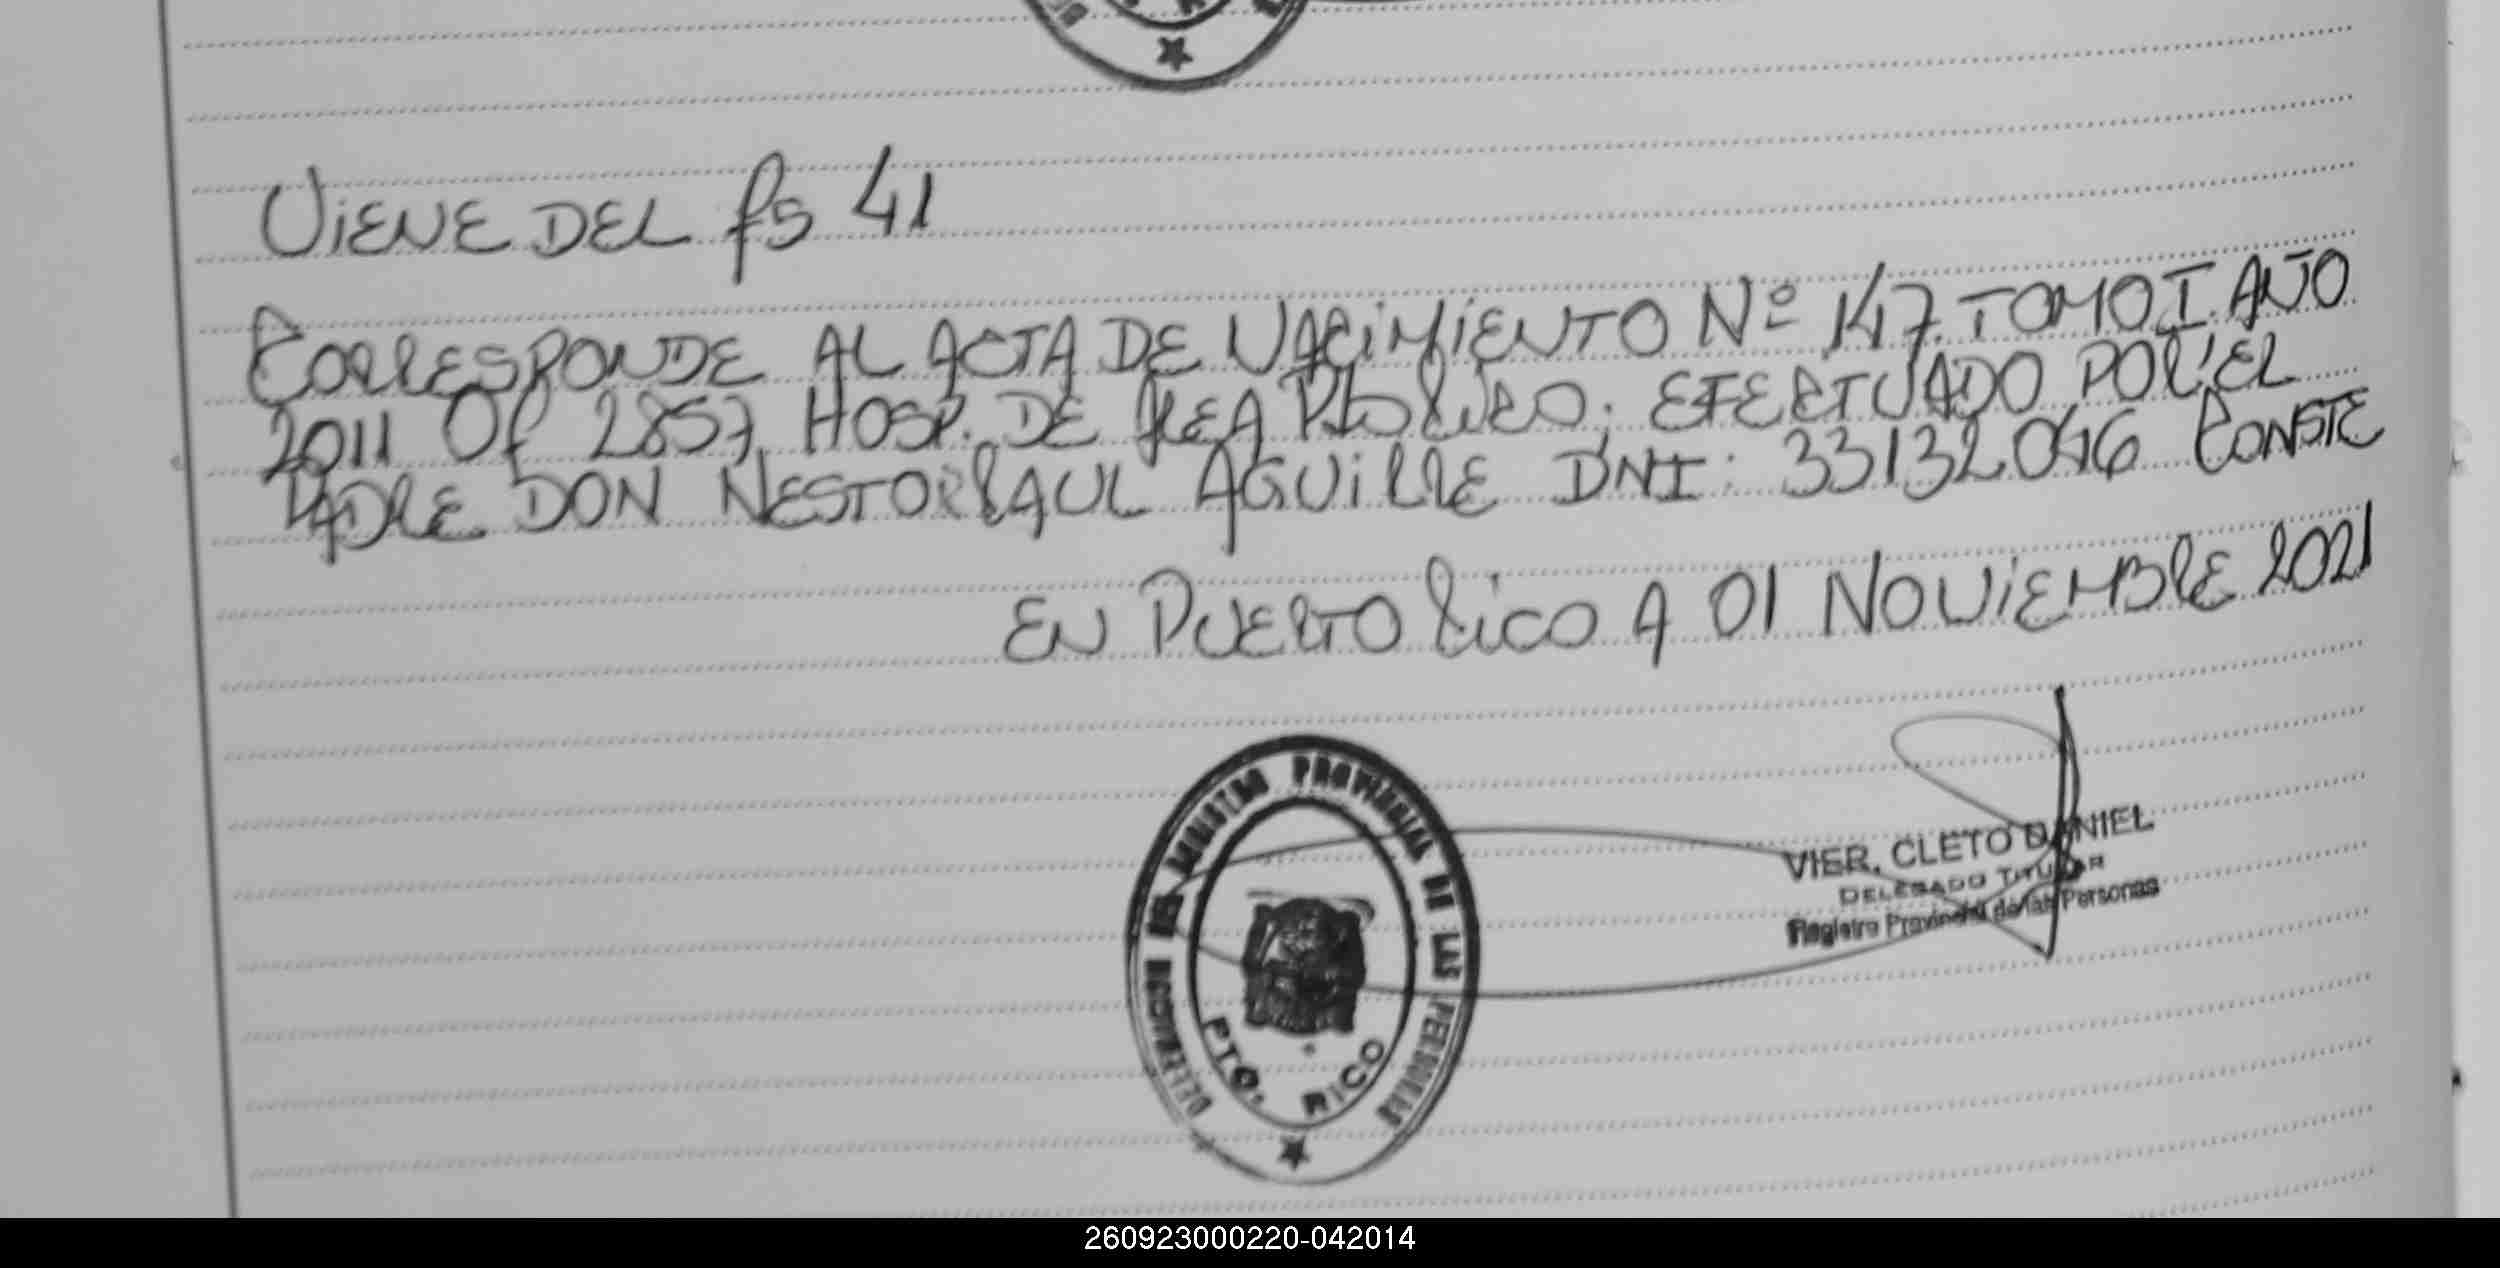 VIENE DEL fs 41
CORRESPONDE AL ACTA DE NACIMIENTO Nº 147. TOMO I. AÑO
2011 Of 2857 HOSP. DE AREA Pto RICO. EFECTUADO POR EL
PADRE DON NESTOR RAUL AGUIRRE DNI: 33132046 CONSTE
EN PUERTO RICO A 01 NOVIEMBRE 2021
DELEGACION DEL REGISTRO PROVINCIAL DE LAS PERSONAS
PTO. RICO
VIER, CLETO DANIEL
DELEGADO TITULAR
Registro Provincial de las Personas
260923000220-042014